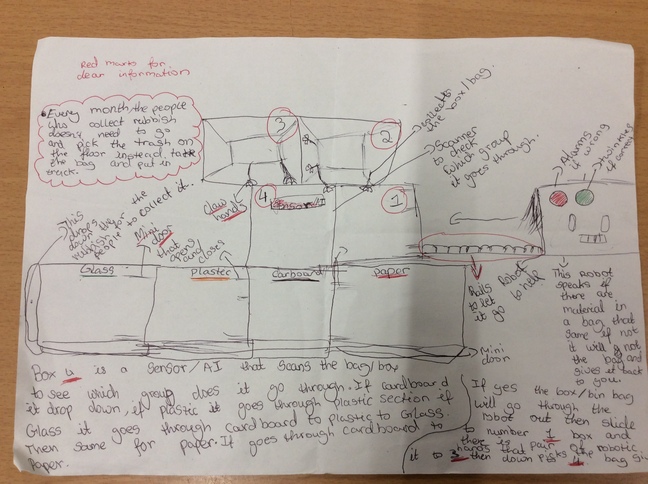 Red marks for
clear information
Every month the people
who collect rubbish
doesn't need to go
and pick the trash on
the floor instead, take
the bag and put in
truck.
3
2
collects
the box/bag.
Scanner
to check
which group
it goes through.
Alarms
if wrong
twinkles
if correct
This drops
down the
rubbish for the
people to collect it.
Mini
door
that
opens
and closes
Claw
hands
4
Sensor/AI
1
Glass
Plastic
Carboard
Paper
Rails
to let
it go
Robot
to help
This Robot
speaks if
there are
material in
a bag that
same if not
it will not
the bag and
gives it back
to you.
Mini
door
Box 4 is a sensor/AI that scans the bag/box
to see which group does it go through. If cardboard
it drop down, if plastic it goes through plastic section if
Glass it goes through cardboard to plastic to Glass.
Then same for paper. If goes through cardboard to
Paper.
If yes the box/bin bag
will go through the
robot out then slide
to number 1 box and
there is pair of robotic
hands that picks the
it to 3 then down to 4 bag